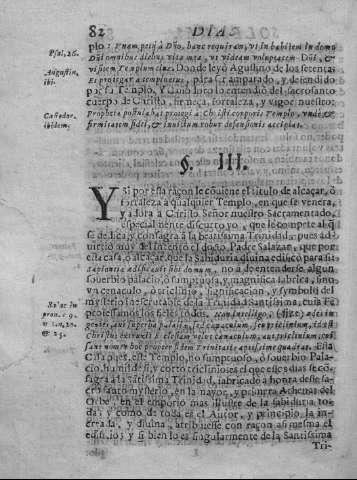 82 DIA
Psal. 26.
plo: Vnam petij à Dño, hanc requiram, vt inhabitem in domo
Dñi omnibus diebus vitæ meæ, vt videam voluptatem Dñi, &
Augustin. ibi.
visitem Templum eius. Donde leyò Agustino de los setenta:
Et protegar à templo eius, para ser amparado, y defendido
por su Templo, y Casiodoro lo entendiò del sacrosanto
cuerpo de Christo, firmeça, fortaleza, y vigor nuestro:
Casiodor. ibidem.
Propheta postulat, protegi à Christi corporis Templo, vnde, &
firmitatem fidei, & inuisum robur defensionis accipiat.
§. III.
Y Si por esta raçon le conuiene el titulo de alcaçar, ò
fortaleza à qualquier Templo, en que se venera,
y adora à Christo Señor nuestro Sacramentado,
especial mente discurro yo, que le compete al q̃
se dedica, y consagra à la beatissima Trinidad, pues ad-
virtiò muy del intento el docto Padre Salazar, que por
esta casa, ò alcaçar que la Sabiduria diuina edificò para si:
sapientia ædificauit sibi domum, no à de entenderse algun
souerbio palacio, ò sumptuosa, y magnifica fabrica, sino
vn cenaculo, ò triclinio, significacion, y symbolo del
mysterio inescrutable de la Trinidad Santissima, cuia Fè
professamos los fieles todos.
Salac. in prou. c. 9. v. 1. n. 20. & 25.
Non intelligo, (dize) ades in-
gentes, aut superba palatia, sed cœnaculum, seu triclinium, id est
Christus extruxit Ecclesiam velut cœnaculum, aut triclinium,
Casa pues, este Templo, no sumptuoso, ò souerbio Pala-
cio, humilde si, y corto triclinio es el que estos dias se con-
sagra à la altissima Trinidad, fabricado à honra deste sa-
cro santo mysterio, en la mayor, y primera Athenas del
Orbe, en el emporio mas ilustre de la sabiduria to-
da, y como de toda es el Autor, y principio la in-
creada, y diuina, atribuesse con raçon assi mesma el
edificio; y si bien lo es singularmente de la Santissima
Tri-